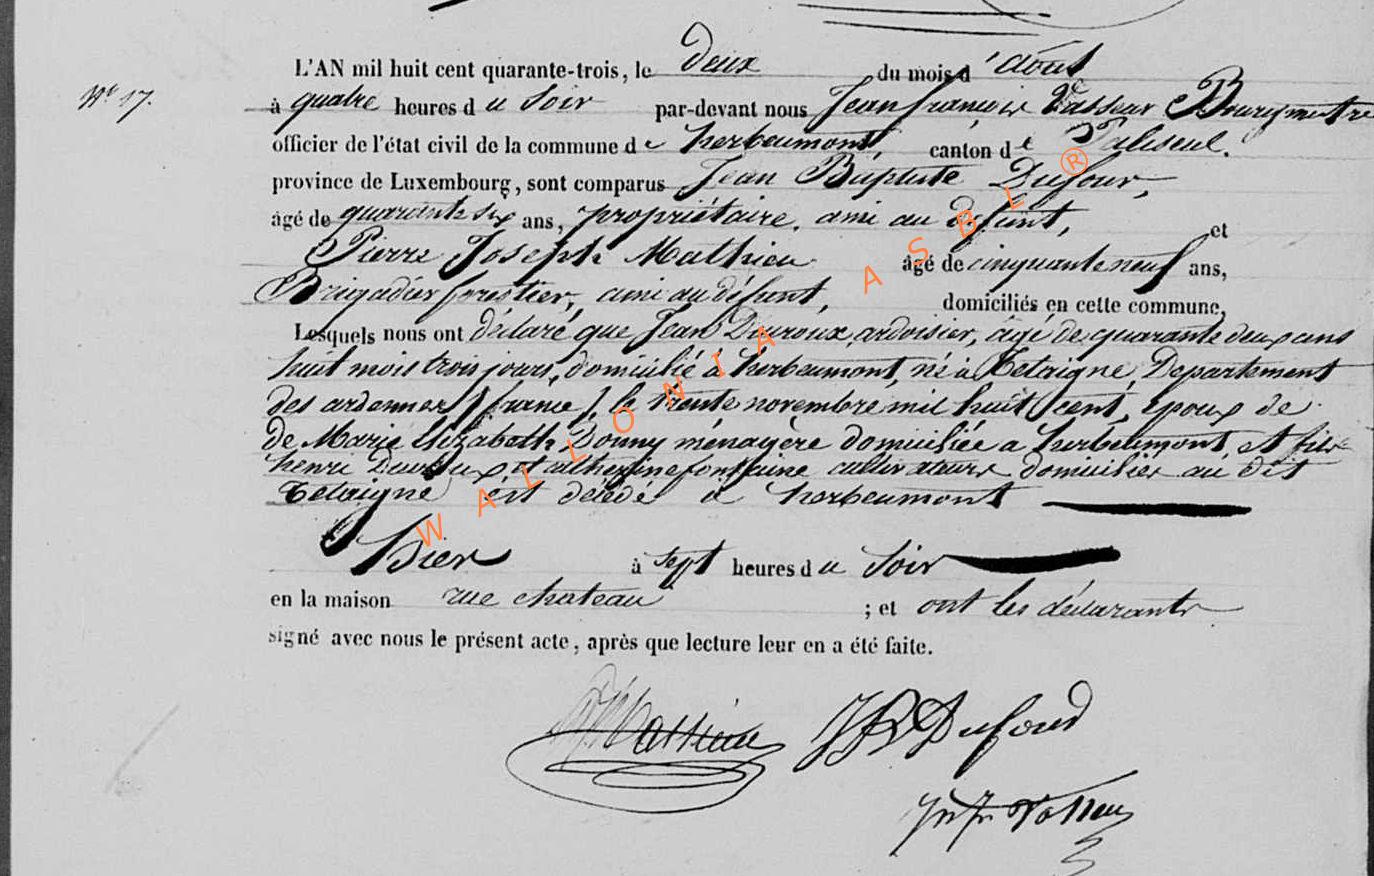 N° 17.
L'AN mil huit cent quarante-trois, le deux du mois d'août
à quatre heures du Soir par-devant nous Jean françois Vasseur Bourgmestre
officier de l'état civil de la commune de herbeumont, canton de Paliseul.
province de Luxembourg, sont comparus Jean Baptiste Dufour,
âgé de quarante six ans, propriétaire, ami au défunt, et
Pierre Joseph Mathieu âgé de cinquante neuf ans,
Brigadier forestier, ami au défunt, domiciliés en cette commune,
Lesquels nous ont déclaré que Jean Duroux, ardoisier, âgé de quarante deux ans
huit mois trois jours, domicilié à herbeumont, né à Tetaigne, Departement
des ardennes (france), le trente novembre mil huit cent, époux de
de Marie Elizabeth Donny ménagère domiciliée a herbeumont, et fils
henri Duroux et catherine fontaine cultivateurs domiciliés au dit
Tetaigne est décédé à herbeumont
hier à sept heures du Soir
en la maison rue chateau ; et ont les déclarants
signé avec nous le présent acte, après que lecture leur en a été faite.
Mathieu JB Dufour
Jn fr Vasseur
WALLONIA ASBL ®